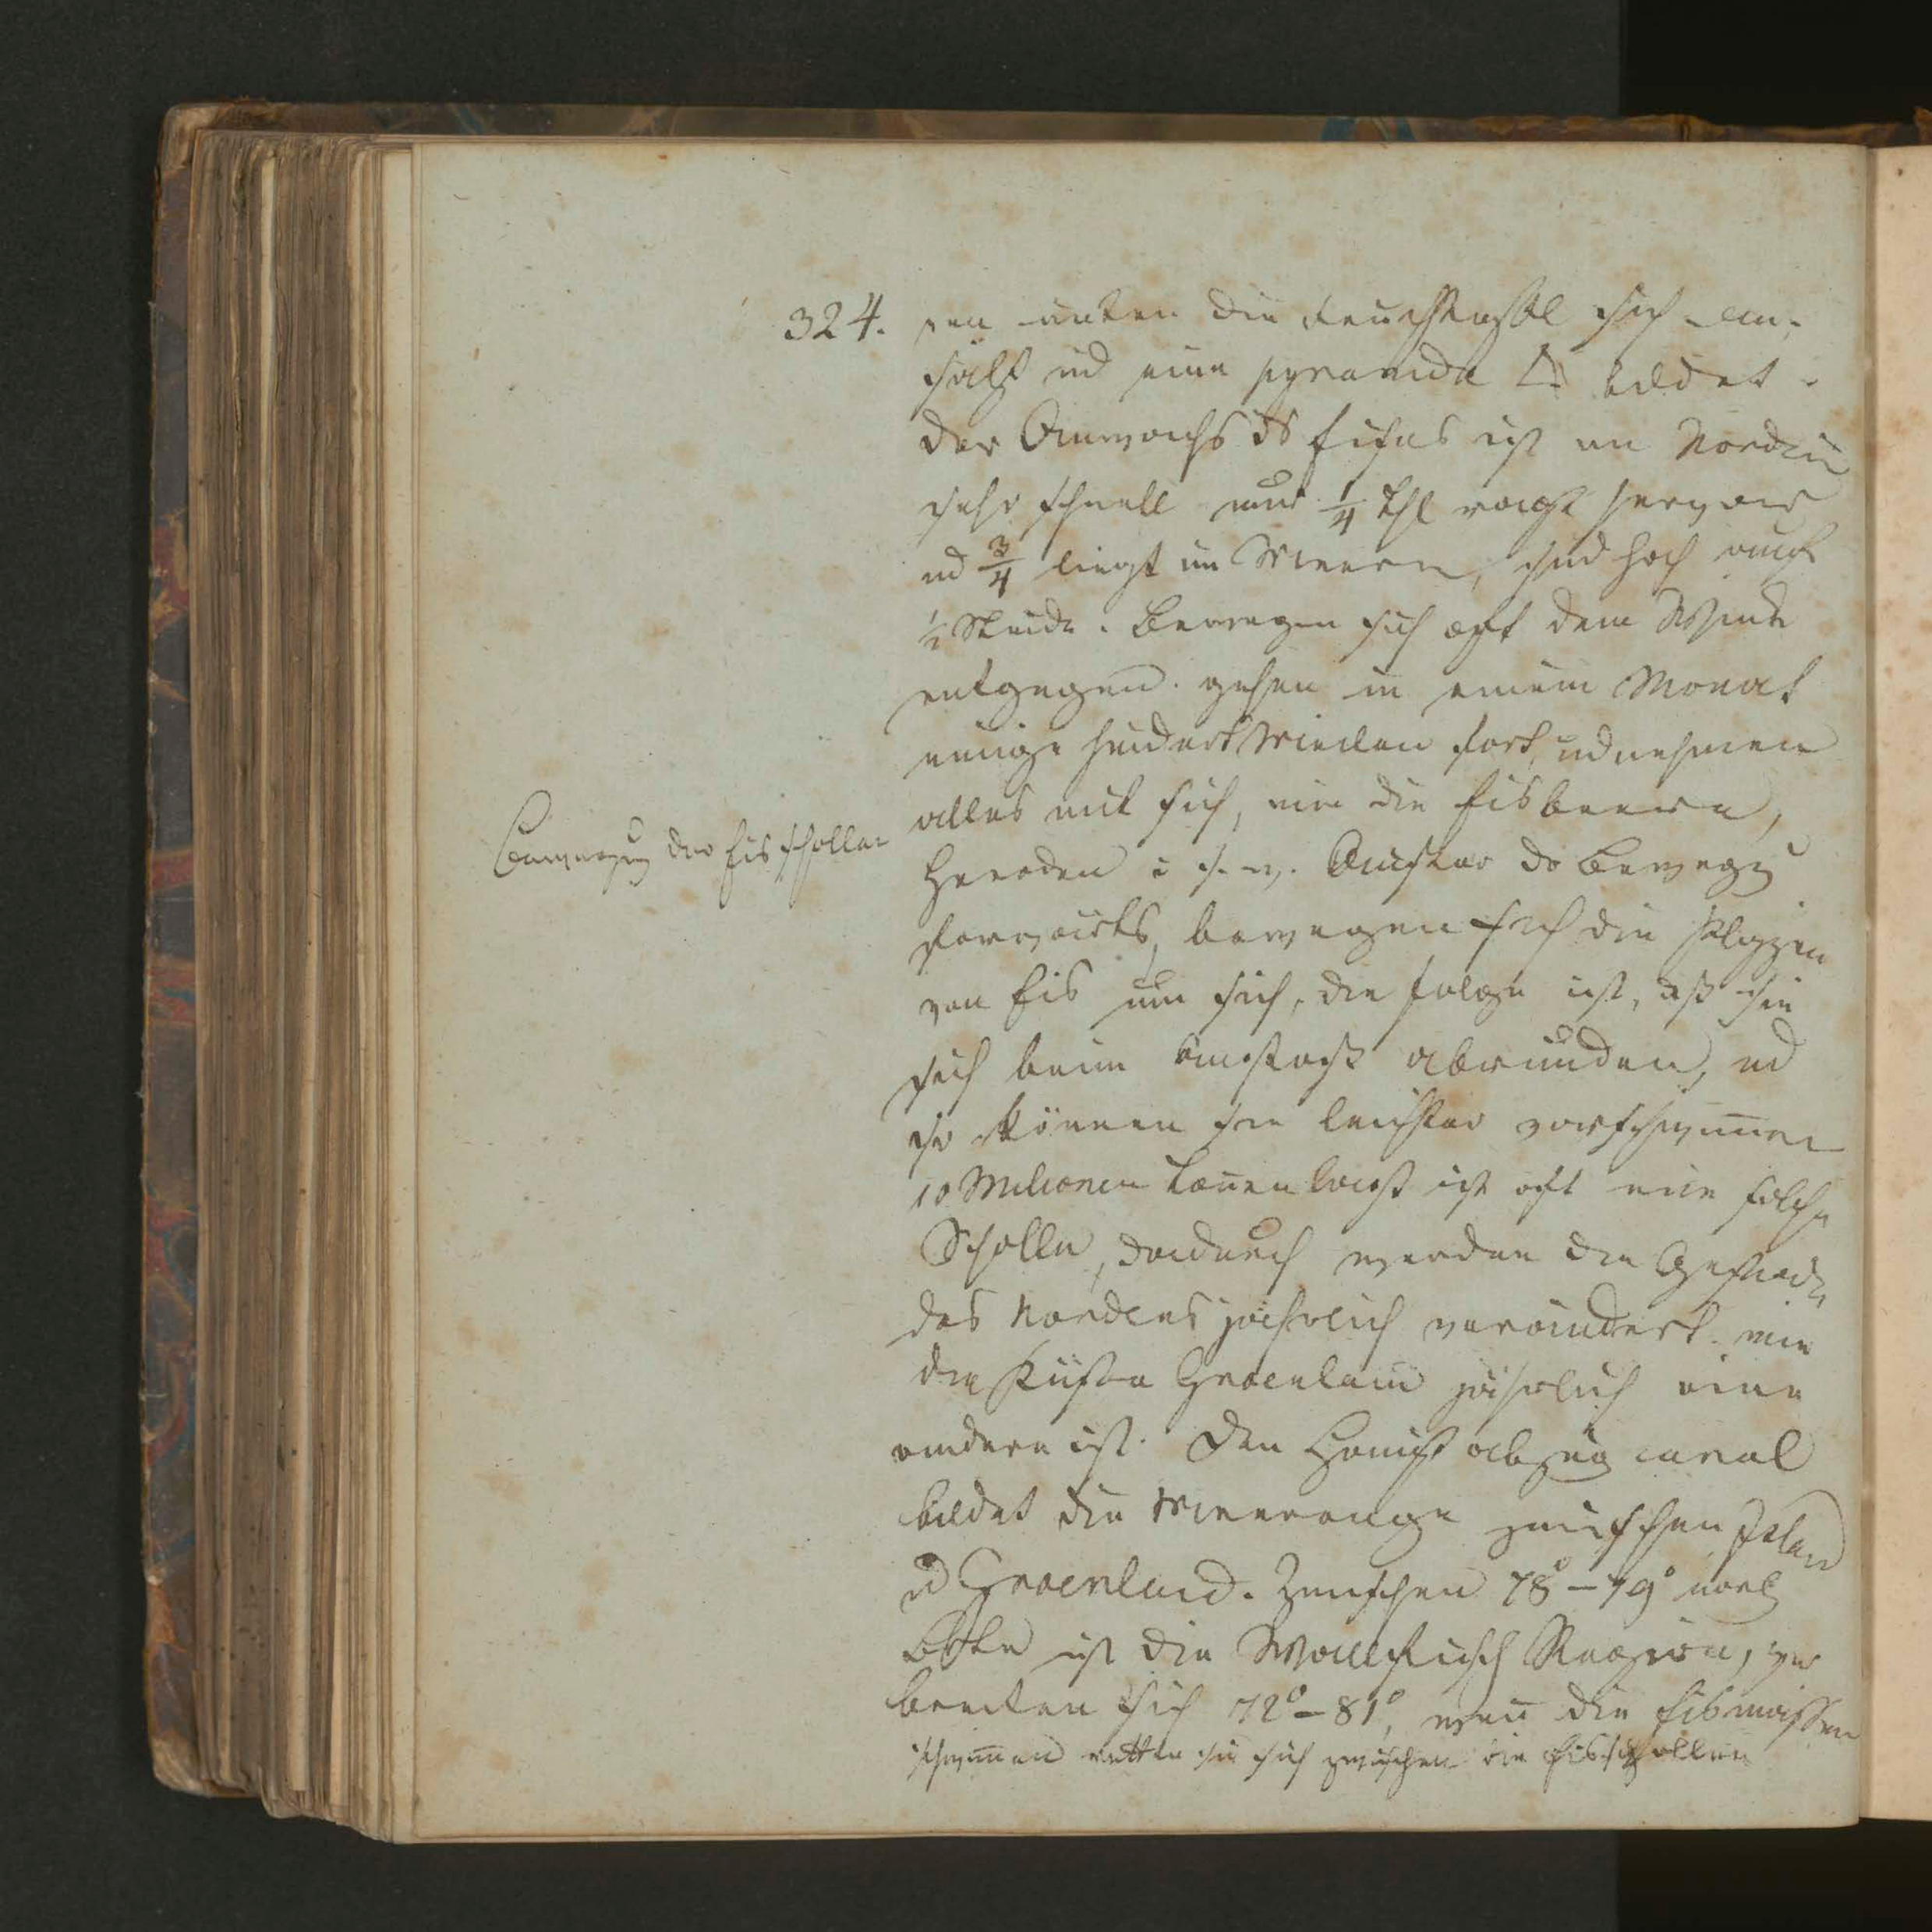 324.
unten die sich an
hält und eine pyramide bildet.
der Anwachs ds Eises ist im Norden
sehr schnell nur 1/4 Thl ragt hervor
ud 3/4 liegt im Meere, sind hoch auch
1/2 Stunde. Bewegen sich oft dem Winde
entgegen. gehen in einem Monat
einige hundert Meilen fort, ud nehmen
alles mit sich, wie die Eisbeere,
Bewegung der Eisschollen
u. s. w. Außer der Bewegg
vorwärts, bewegen sich die
von Eis um sich, die folge ist, dß sie
sich beim abrunden, ud
so können sie leichter vorschwimmen
10 Milionen ist oft eine solche
Scholle, dadurch werden die Gestade
des Nordens jährlich verändert. wie
die Küste Groenland jährlich eine
andere ist. Den Haupt abzug canal
bildet die Meerenge zwischen Island
ud Groenland. Zwischen 78° – 79° nördl
Breite ist die Wallfisch Region, ver
breiten sich 72° – 81°, wenn die Eismassen
schwimmen retten sie sich zwischen die Eisschollen